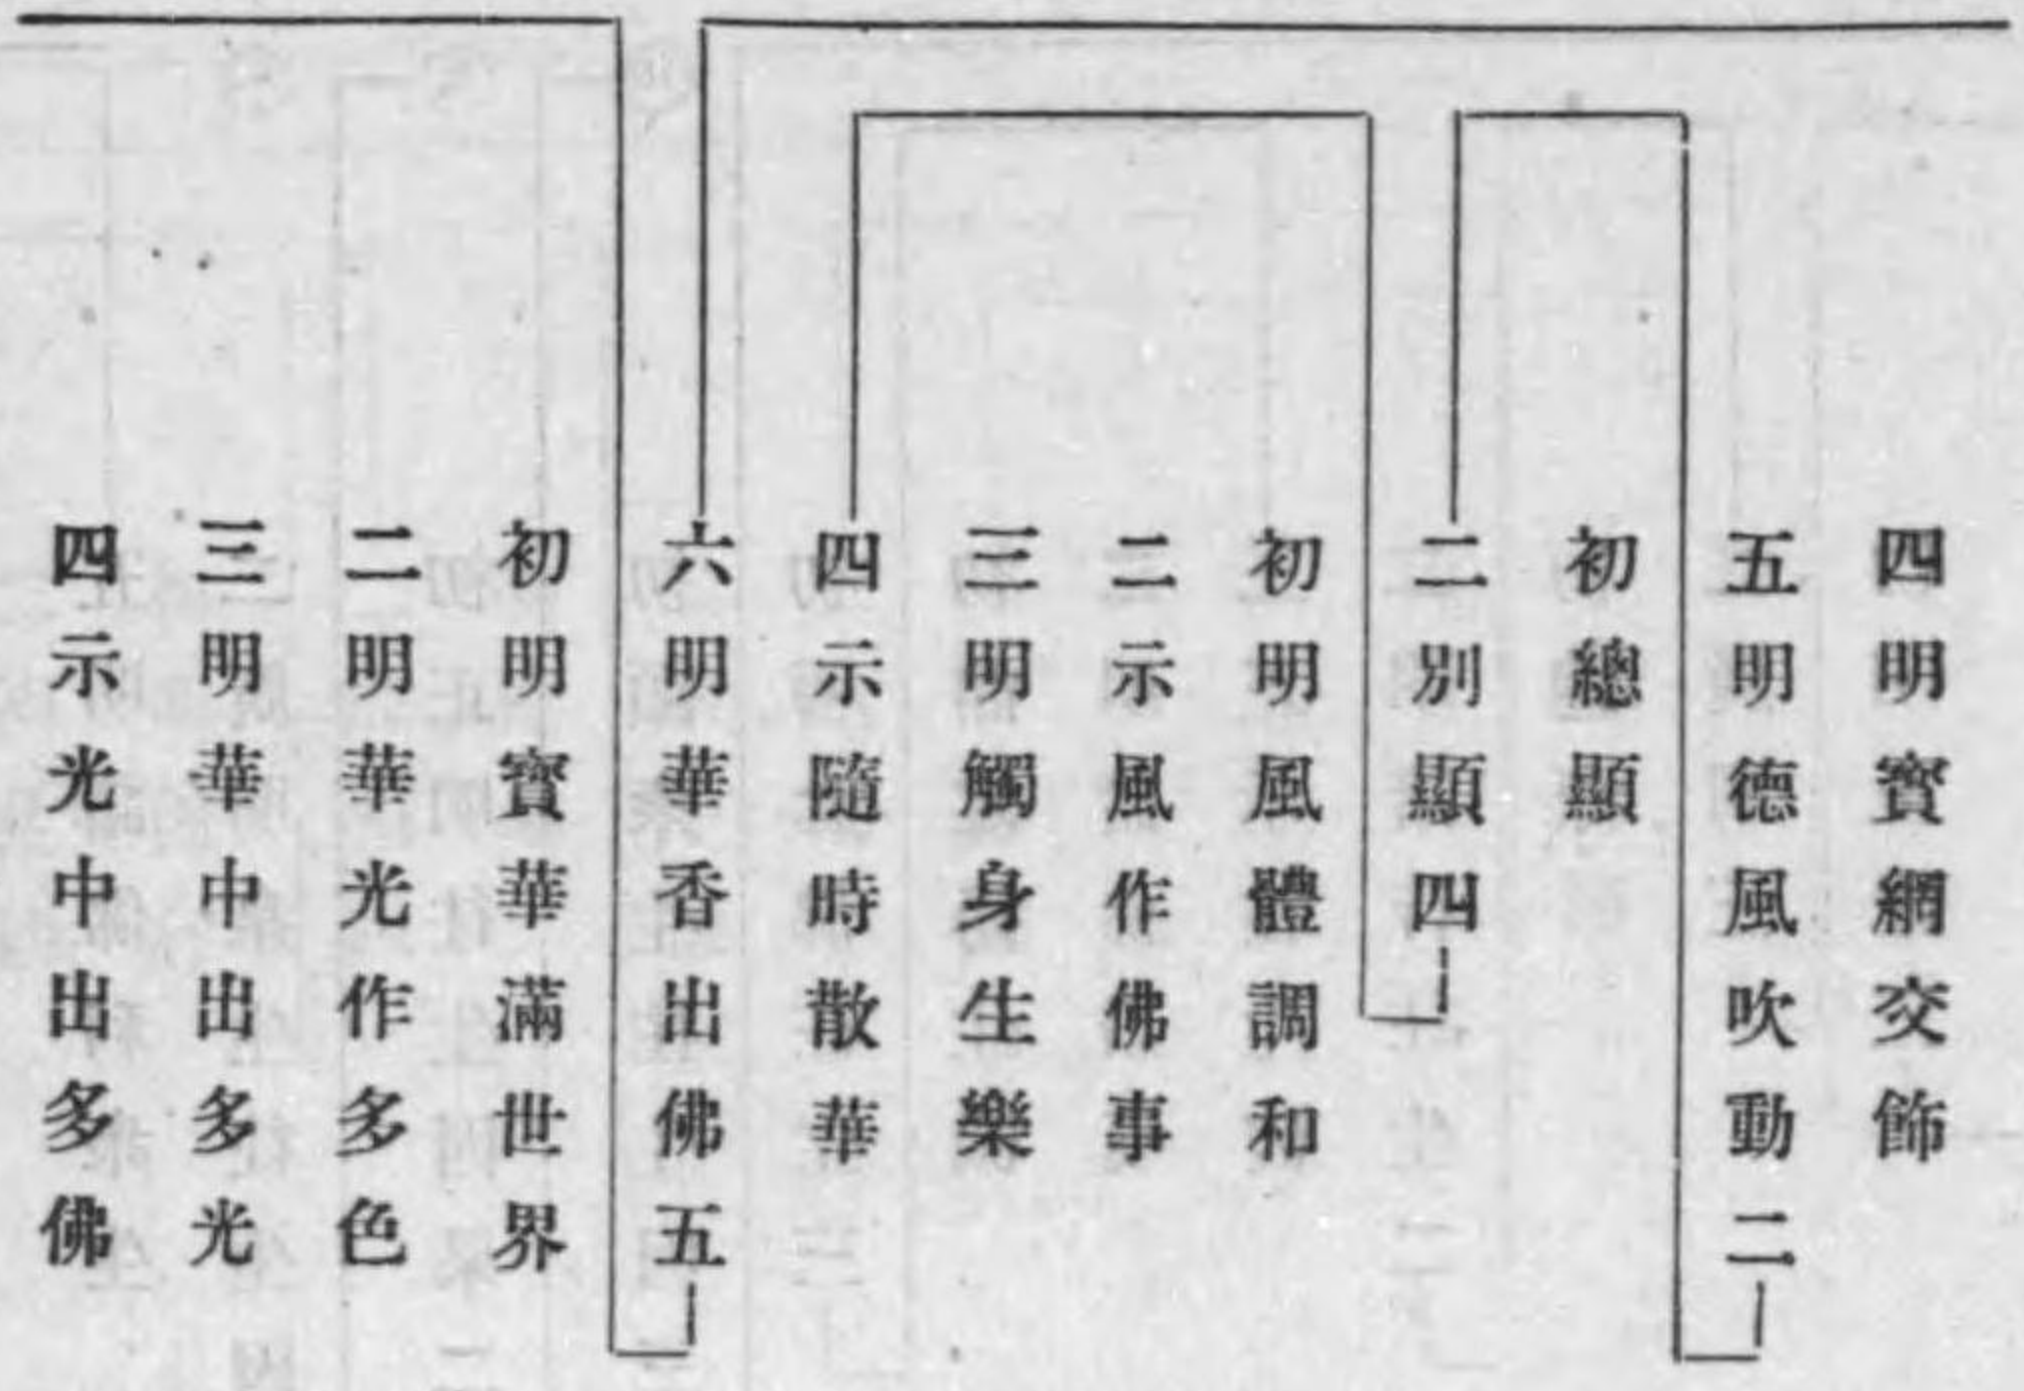 四明寶網交飾
五明德風吹動二
初總顯
二別顯四
初明風體調和
二示風作佛事
三明觸身生樂
四示隨時散華
六明華香出佛五
初明寶華滿世界
二明華光作多色
三明華中出多光
四示光中出多佛